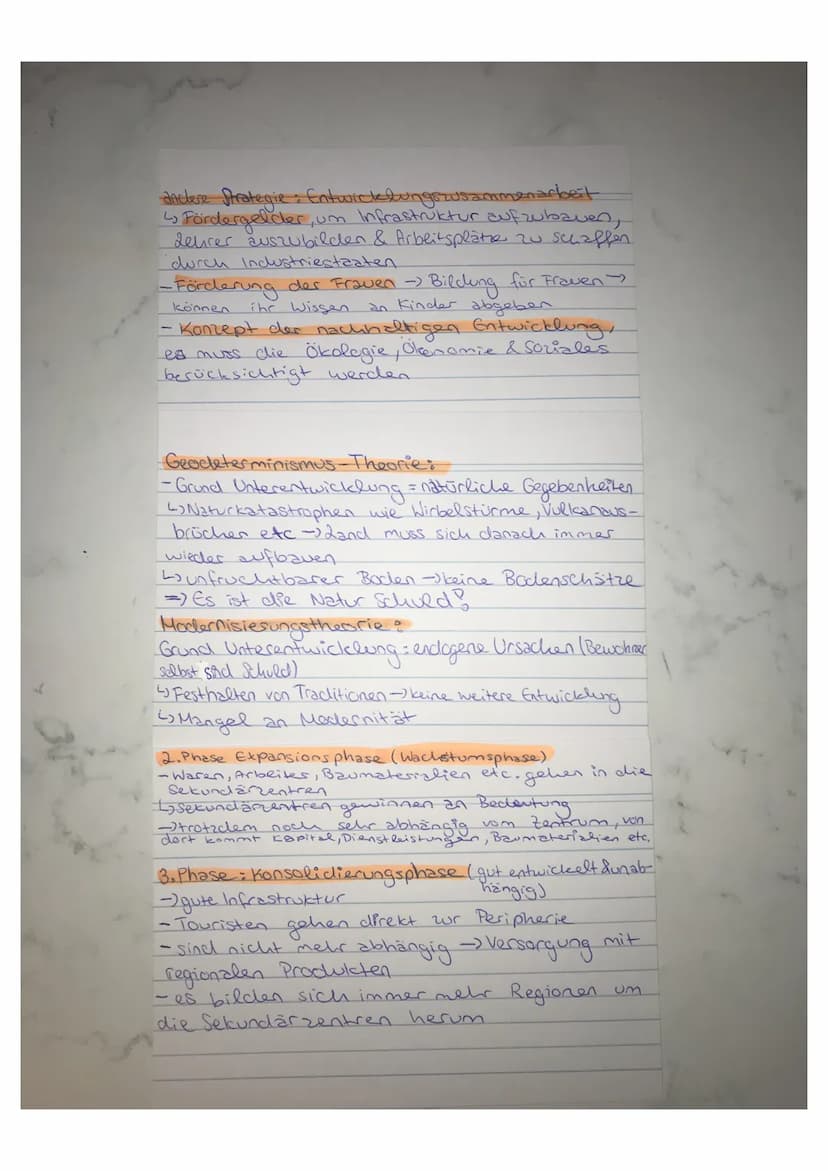 andere Strategie: Entwicklungszusammenarbeit
↳ Fördergelder, um Infrastruktur aufzubauen,
Lehrer auszubilden & Arbeitsplätze zu schaffen
durch Industriestaaten
- Förderung der Frauen → Bildung für Frauen →
können ihr Wissen an Kinder abgeben
- Konzept der nachhaltigen Entwicklung,
es muss die Ökologie, Ökonomie & Soziales
berücksichtigt werden
Geodeterminismus-Theorie:
- Grund Unterentwicklung = natürliche Gegebenheiten
↳ Naturkatastrophen wie Wirbelstürme, Vulkanaus-
brüchen etc → Land muss sich danach immer
wieder aufbauen
↳ unfruchtbarer Boden → keine Bodenschätze
⇒ Es ist die Natur Schuld!
Modernisierungstheorie:
Grund Unterentwicklung: endogene Ursachen (Bewohner
selbst sind Schuld)
↳ Festhalten von Traditionen → keine weitere Entwicklung
↳ Mangel an Modernität
2. Phase Expansionsphase (Wachstumsphase)
- Waren, Arbeiter, Baumaterialien etc. gehen in die
Sekundärzentren
↳ Sekundärzentren gewinnen an Bedeutung
→ trotzdem noch sehr abhängig vom Zentrum, von
dort kommt Kapital, Dienstleistungen, Baumaterialien etc.
3. Phase: Konsolidierungsphase (gut entwickelt & unab-
hängig)
→ gute Infrastruktur
- Touristen gehen direkt zur Peripherie
- sind nicht mehr abhängig → Versorgung mit
regionalen Produkten
- es bilden sich immer mehr Regionen um
die Sekundärzentren herum